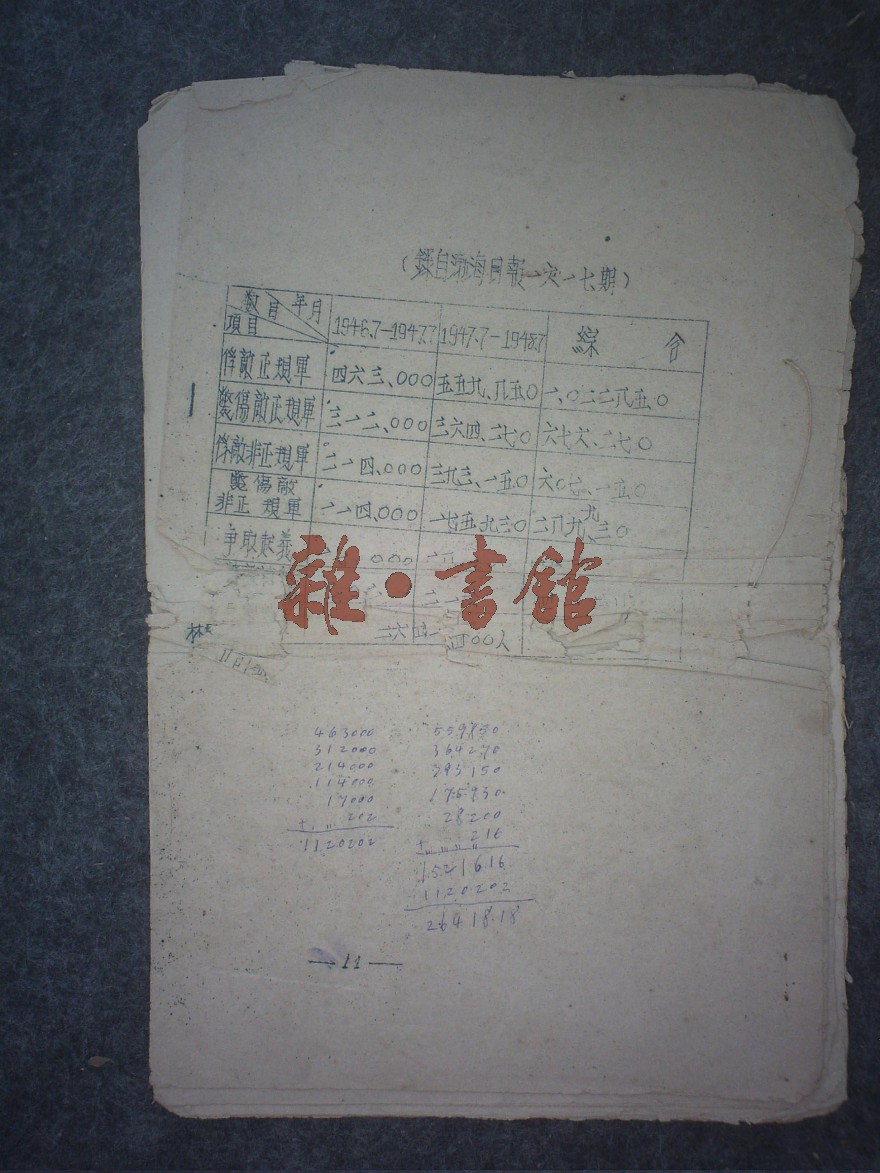 (錄自渤海日報一六一七期)
數目 年月
項目
1946.7-1947.7 1947.7-1948.7 綜合
俘敵正規軍 四六三、〇〇〇 五五九、八五〇 一、〇二二八五、〇
斃傷敵正規軍 三一二、〇〇〇 三六四、二七〇 六七六、二七〇
俘敵非正規軍 二一四、〇〇〇 三九三、一五〇 六〇七、一五〇
斃傷敵
非正規軍 一一四、〇〇〇 一七五、九三〇 二八九、九三〇
爭取起義 〇〇〇
二六四一 四〇〇人
雜·書館
463000 559850
312000 364270
214000 393150
114000 175930
17000 28200
+ 202 216
1120202 + 1521616
1120202
2641818
—11—